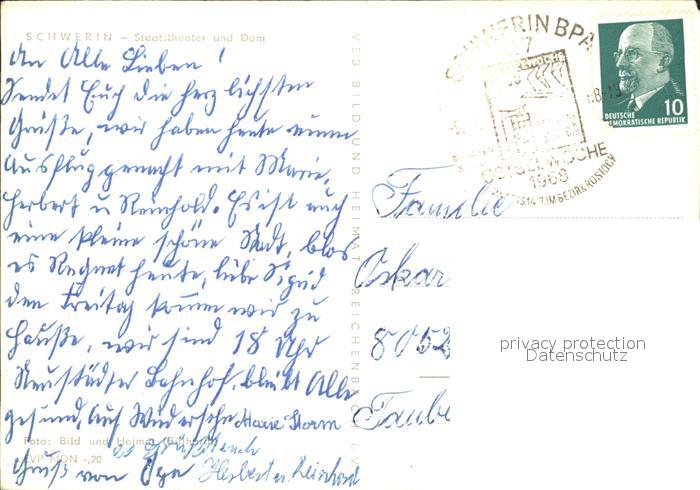 SCHWERIN – Staatstheater und Dom
An Alle Lieben!
Sendet Euch die herzlichsten
Grüße, wir haben heute einen
Ausflug gemacht mit Marie,
Herbert u Reinhold. Es ist auch
eine kleine schöne Stadt, blos
es Regnet heute, liebe Sigrid
den Freitag komm wir zu
Hauße, wir sind 18 Uhr
Neustädter Bahnhof. bleibt Alle
gesund, Auf Wiedersehn Marie
es grüßt euch
Gruß von Opa Herbert u. Reinhard
Foto: Bild und Heimat
EVP MDN -,20
VEB BILD UND HEIMAT REICHENBACH
SCHWERIN BPA
OSTSEEWOCHE
1968
7. IM BEZIRK ROSTOCK
10
DEUTSCHE
DEMOKRATISCHE REPUBLIK
Familie
Oskar
8052
Taube
privacy protection
Datenschutz